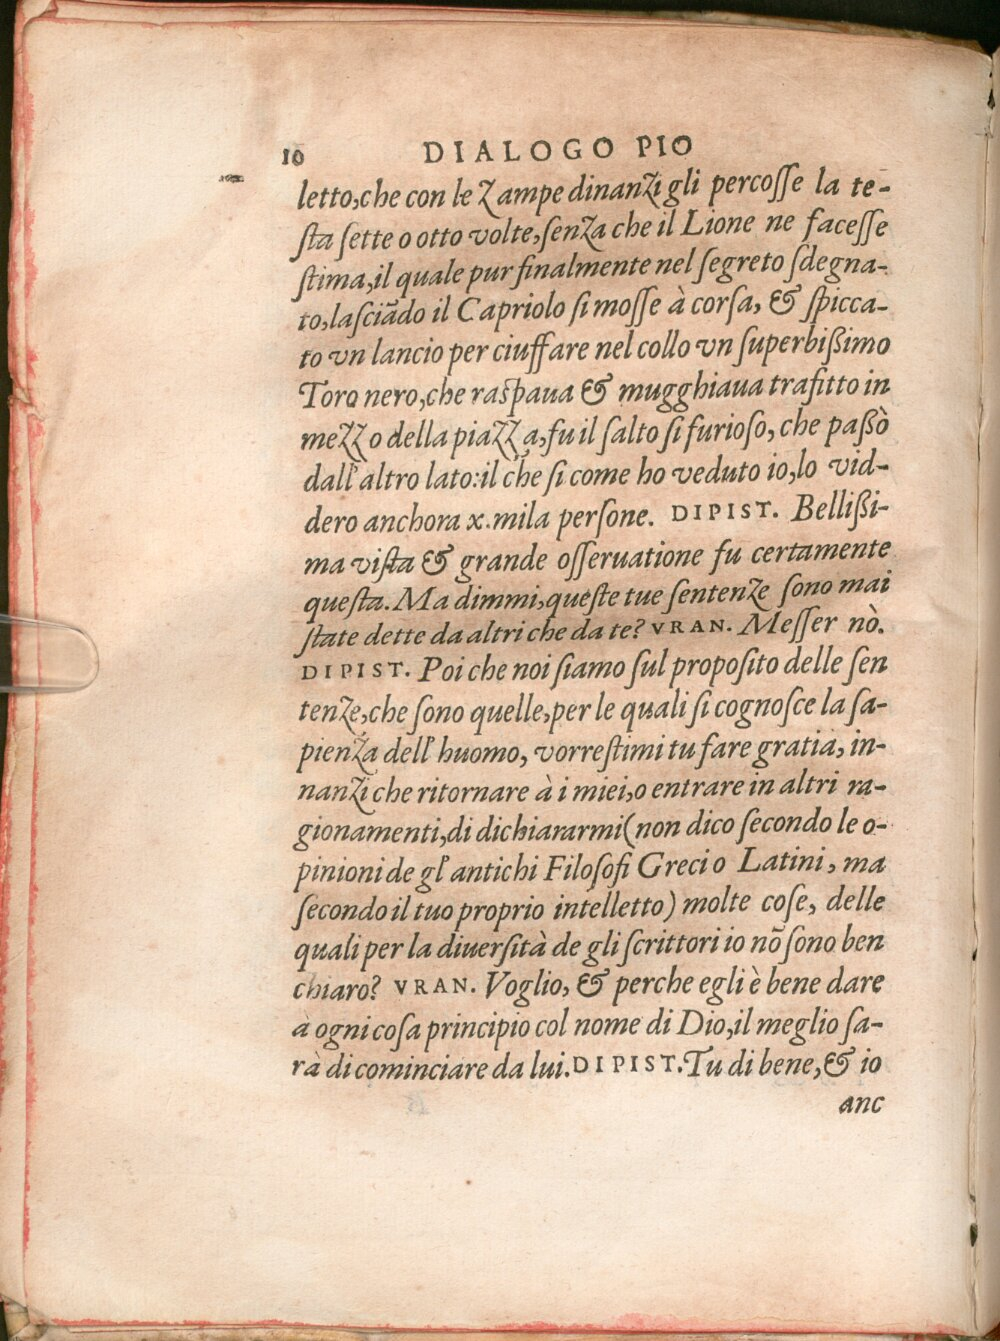 10 DIALOGO PIO
letto,che con le Zampe dinanzi gli percosse la te-
sta sette o otto volte,senza che il Lione ne facesse
stima,il quale pur finalmente nel segreto sdegna-
to,lasciãdo il Capriolo si mosse à corsa, & spicca-
to vn lancio per ciuffare nel collo vn superbißimo
Toro nero,che raspaua & mugghiaua trafitto in
mezzo della piazza,fu il salto si furioso, che paßò
dall'altro lato:il che si come ho veduto io,lo vid-
dero anchora x.mila persone. DIPIST. Bellißi-
ma vista & grande osseruatione fu certamente
questa. Ma dimmi,queste tue sentenze sono mai
state dette da altri che da te? VRAN. Messer nò.
DIPIST. Poi che noi siamo sul proposito delle sen
tenze,che sono quelle,per le quali si cognosce la sa-
pienza dell'huomo, vorrestimi tu fare gratia, in-
nanzi che ritornare à i miei,o entrare in altri ra-
gionamenti,di dichiararmi(non dico secondo le o-
pinioni de gl'antichi Filosofi Greci o Latini, ma
secondo il tuo proprio intelletto) molte cose, delle
quali per la diuersità de gli scrittori io nõ sono ben
chiaro? VRAN. Voglio, & perche egli è bene dare
à ogni cosa principio col nome di Dio,il meglio sa-
rà di cominciare da lui. DIPIST. Tu di bene,& io
anc